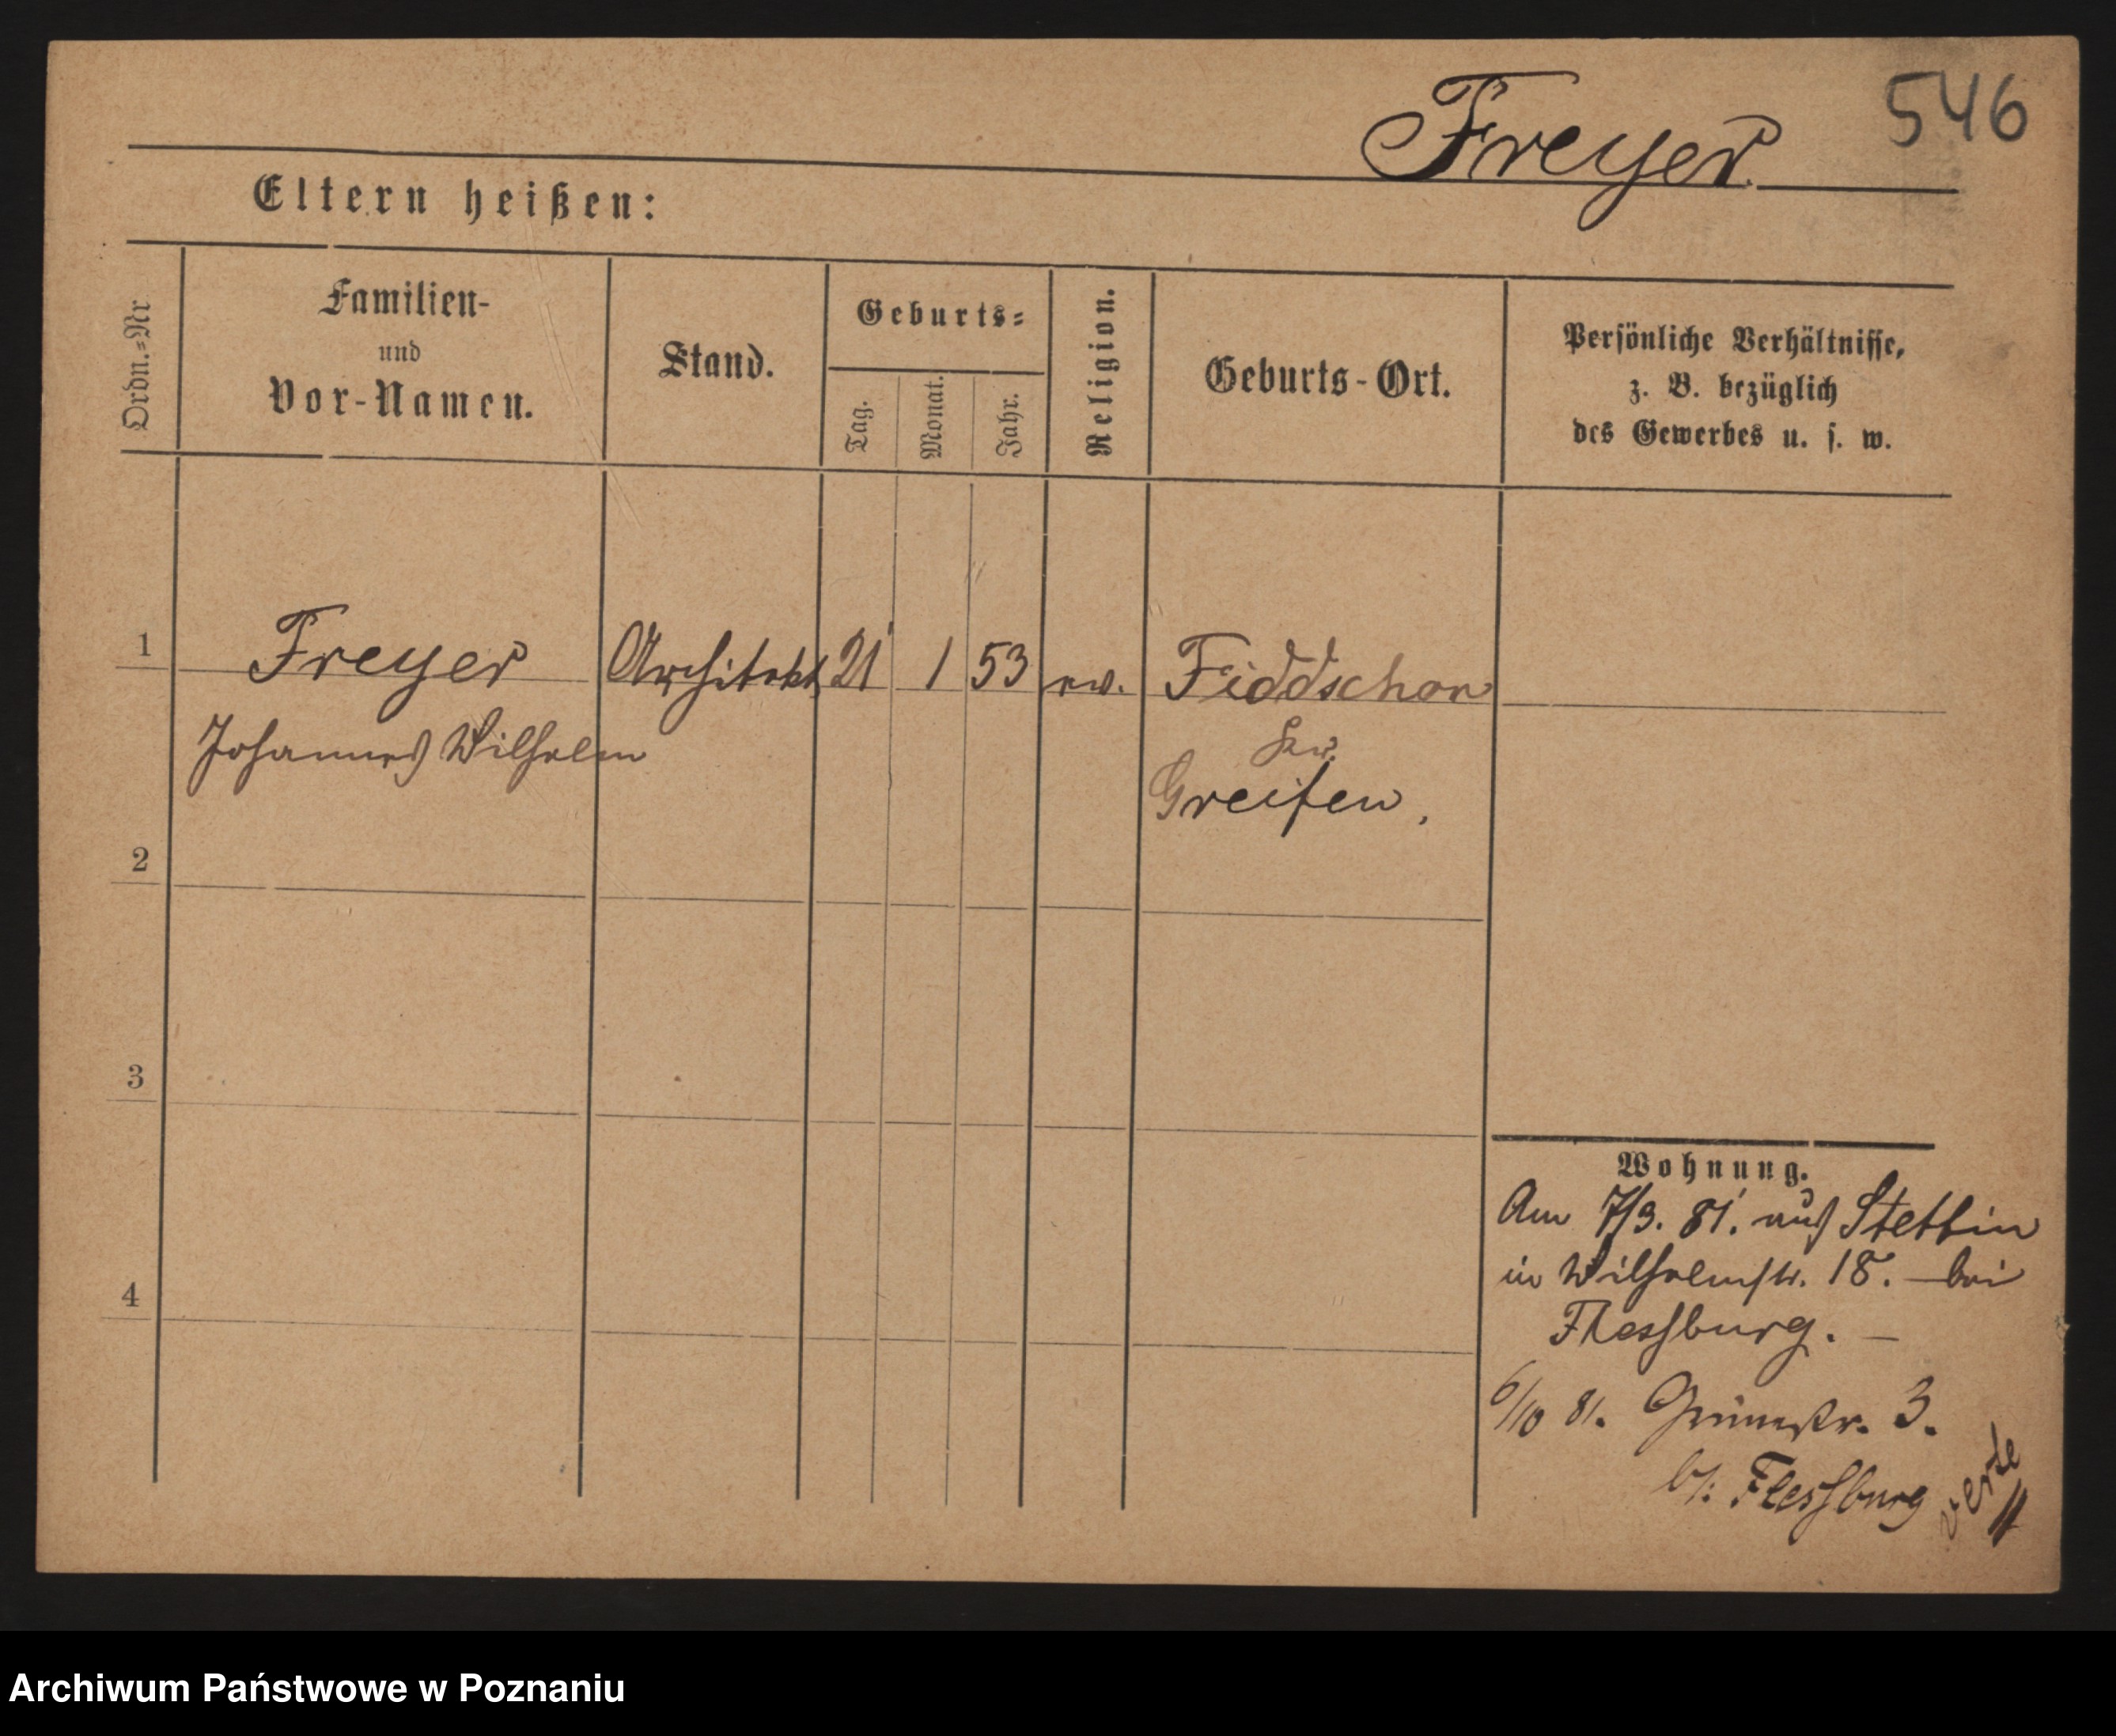 546
Freyer.
Eltern heißen:
Ordn.-Nr
Familien-
und
Vor-Namen.
Stand.
Geburts-
Tag.
Monat.
Jahr.
Religion.
Geburts-Ort.
Persönliche Verhältnisse,
z. B. bezüglich
des Gewerbes u. s. w.
1
Freyer
Architekt
21
1
53
ev.
Fiddschow
Johannes Wilhelm
Kr.
Greifen.
2
3
4
Wohnung.
Am 7/3. 81. aus Stettin
in Wilhelmstr. 18. bei
Flessburg. —
6/10 81. Grünestr. 3.
b/: Flessburg
verte
Archiwum Państwowe w Poznaniu